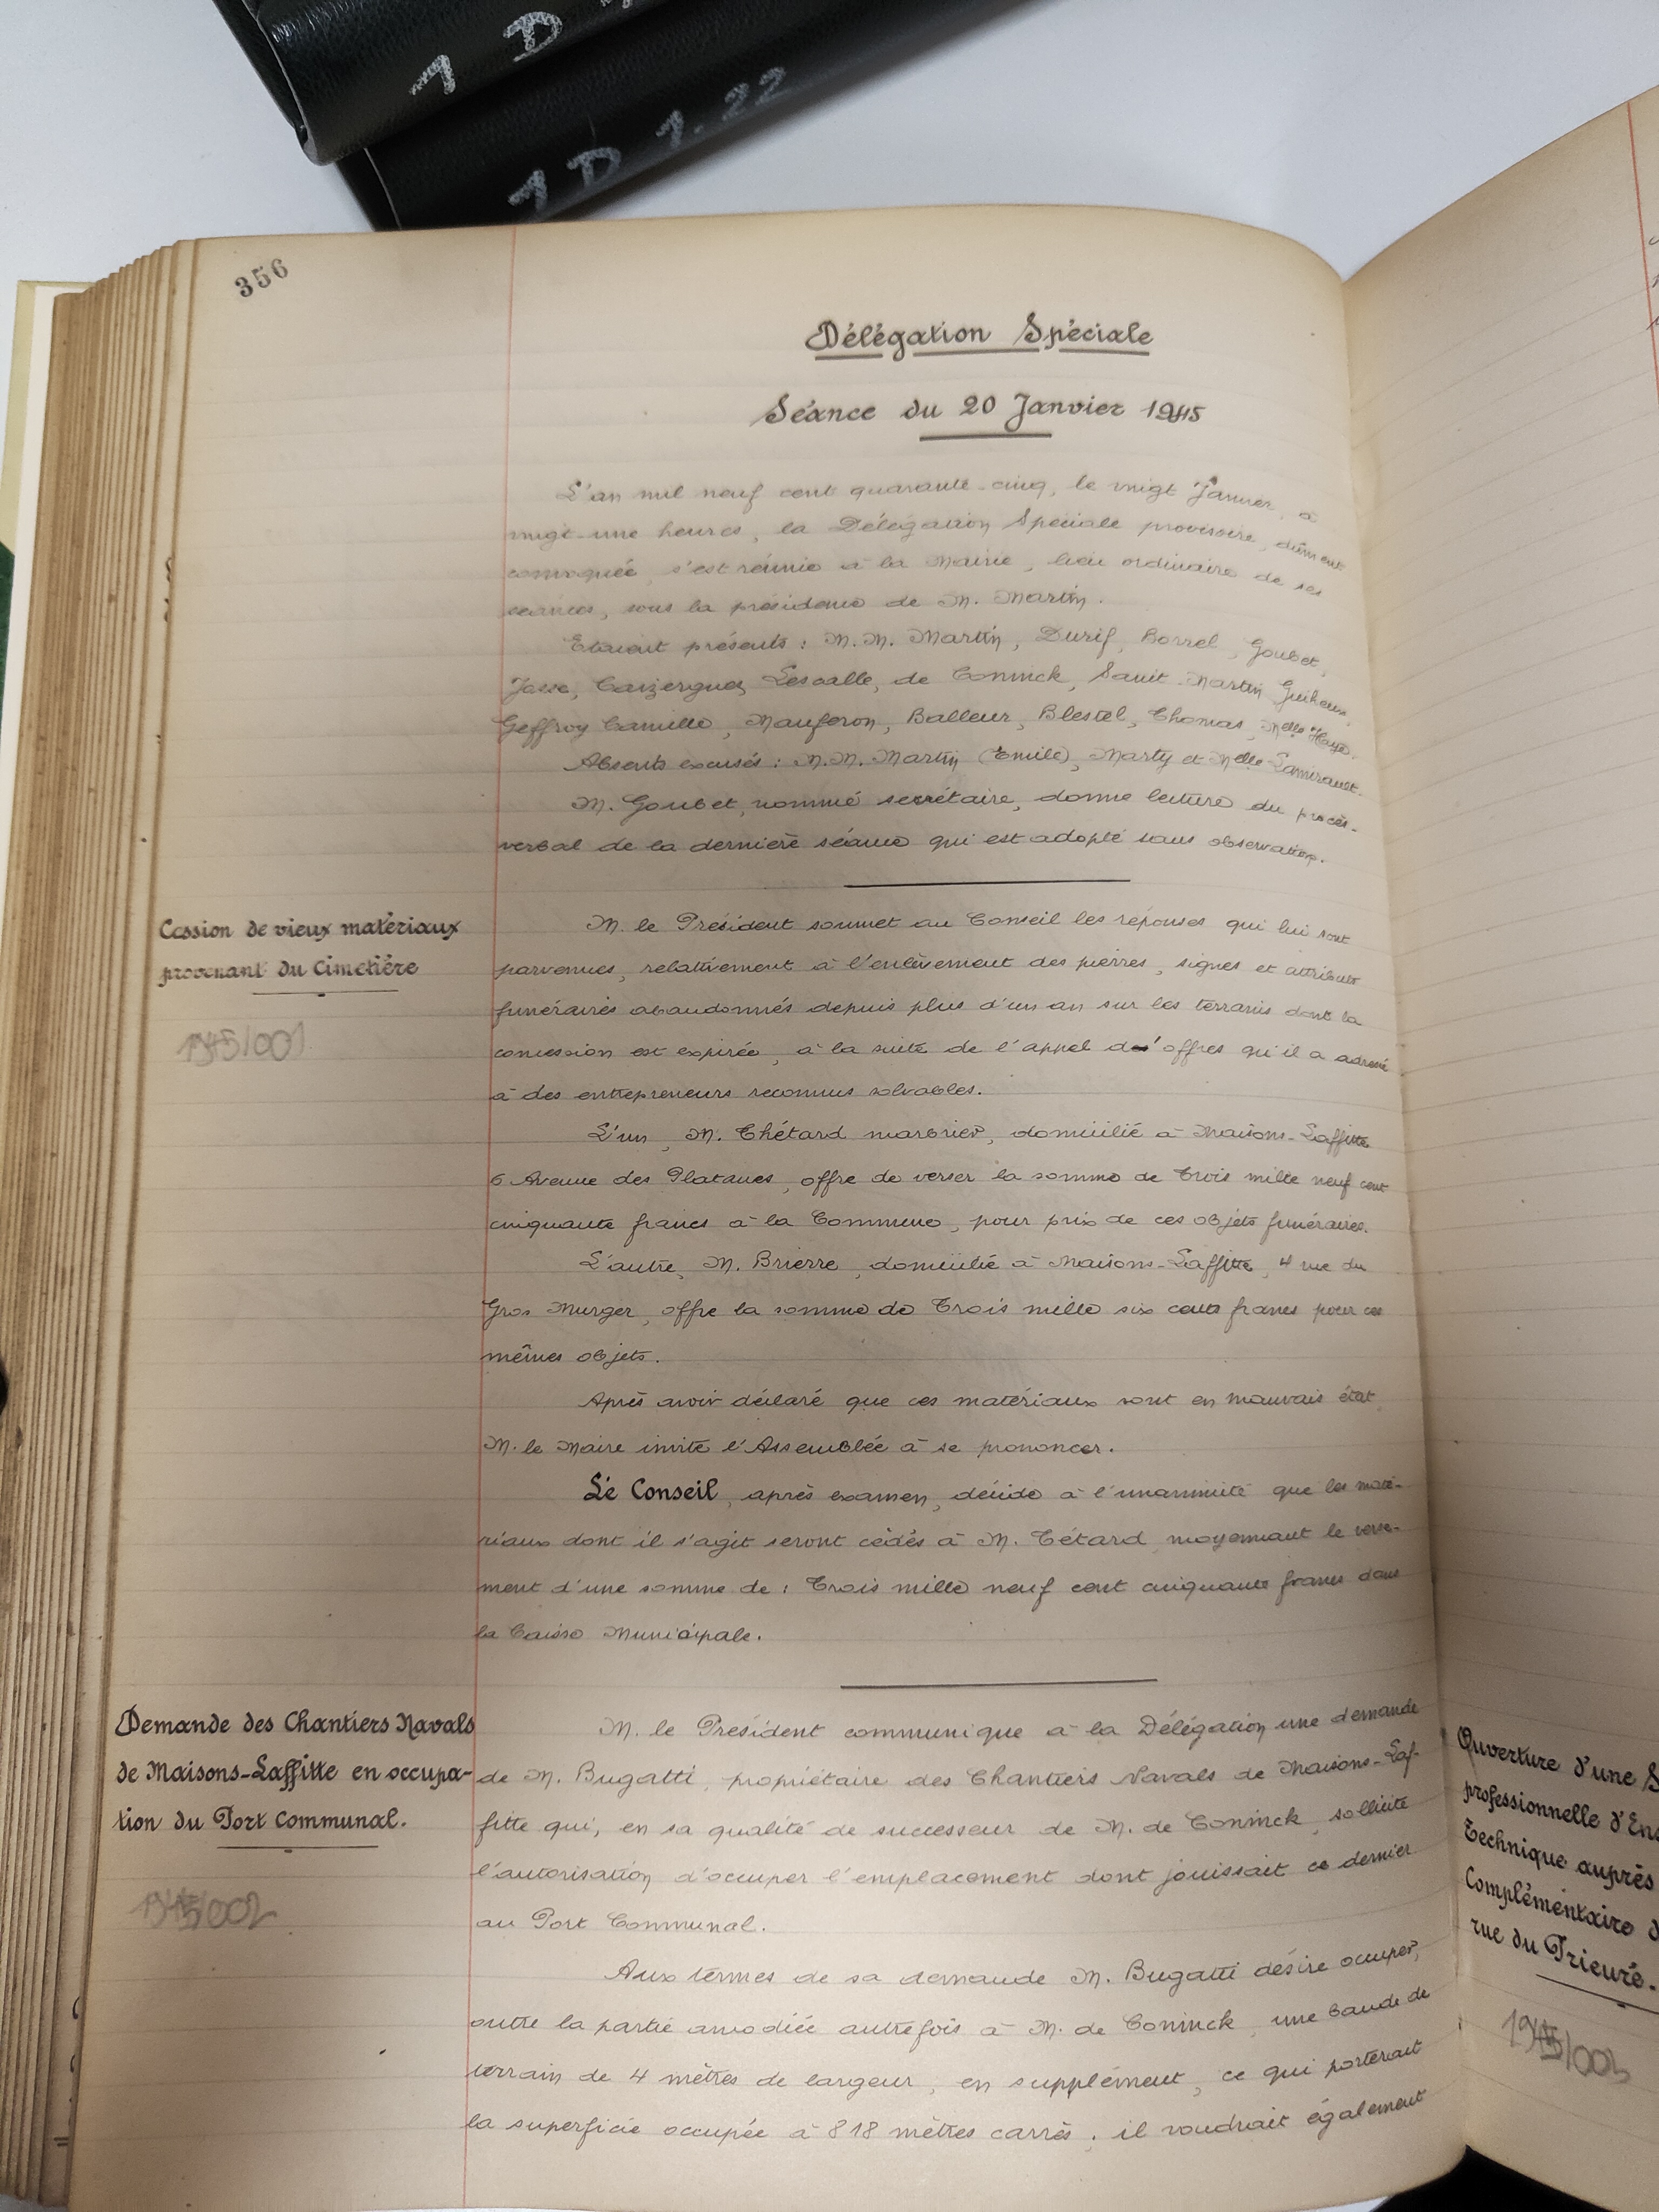 1 D
1 D 1.22
356
Délégation Spéciale
Séance du 20 Janvier 1945
L'an mil neuf cent quarante-cinq, le vingt Janvier, à
vingt-une heures, la Délégation Spéciale provisoire, dûment
convoquée, s'est réunie à la Mairie, lieu ordinaire de ses
séances, sous la présidence de M. Martin.
Etaient présents : M.M. Martin, Durif, Borrel, Goubet,
Cazergues, Lescalle, de Coninck, Saint-Martin
Geffroy Camille, Maugeron, Balleur, Blestel, Thomas, Melle Haye.
Absents excusés : M.M. Martin (Emile), Marty et Melle Lamirault.
M. Goubet, nommé secrétaire, donne lecture du procès-
verbal de la dernière séance qui est adopté sans observation.
Cession de vieux matériaux
provenant du Cimetière
1945/001
M. le Président soumet au Conseil les réponses qui lui sont
parvenues, relativement à l'enlèvement des pierres, signes et attributs
funéraires abandonnés depuis plus d'un an sur les terrains dont la
concession est expirée, à la suite de l'appel d'offres qu'il a adressé
à des entrepreneurs reconnus solvables.
L'un, M. Thétard marbrier, domicilié à Maisons-Laffitte
6 Avenue des Platanes, offre de verser la somme de Trois mille neuf cent
cinquante francs à la Commune, pour prix de ces objets funéraires.
L'autre, M. Brierre, domicilié à Maisons-Laffitte, 4 rue du
Gros Murger, offre la somme de Trois mille six cents francs pour ces
mêmes objets.
Après avoir déclaré que ces matériaux sont en mauvais état,
M. le Maire invite l'Assemblée à se prononcer.
Le Conseil, après examen, décide à l'unanimité que les maté-
riaux dont il s'agit seront cédés à M. Tétard, moyennant le verse-
ment d'une somme de : Trois mille neuf cent cinquante francs dans
la Caisse Municipale.
Demande des Chantiers Navals
de Maisons-Laffitte en occupa-
tion du Port Communal.
1945/002
M. le Président communique à la Délégation une demande
de M. Bugatti, propriétaire des Chantiers Navals de Maisons-Laf-
fitte qui, en sa qualité de successeur de M. de Coninck, sollicite
l'autorisation d'occuper l'emplacement dont jouissait ce dernier
au Port Communal.
Aux termes de sa demande M. Bugatti désire occuper,
outre la partie amodiée autrefois à M. de Coninck, une bande de
terrain de 4 mètres de largeur, en supplément, ce qui porterait
la superficie occupée à 818 mètres carrés ; il voudrait également
Ouverture d'une S
professionnelle d'Ens
Technique auprès
Complémentaire d
rue du Prieuré.
1945/003